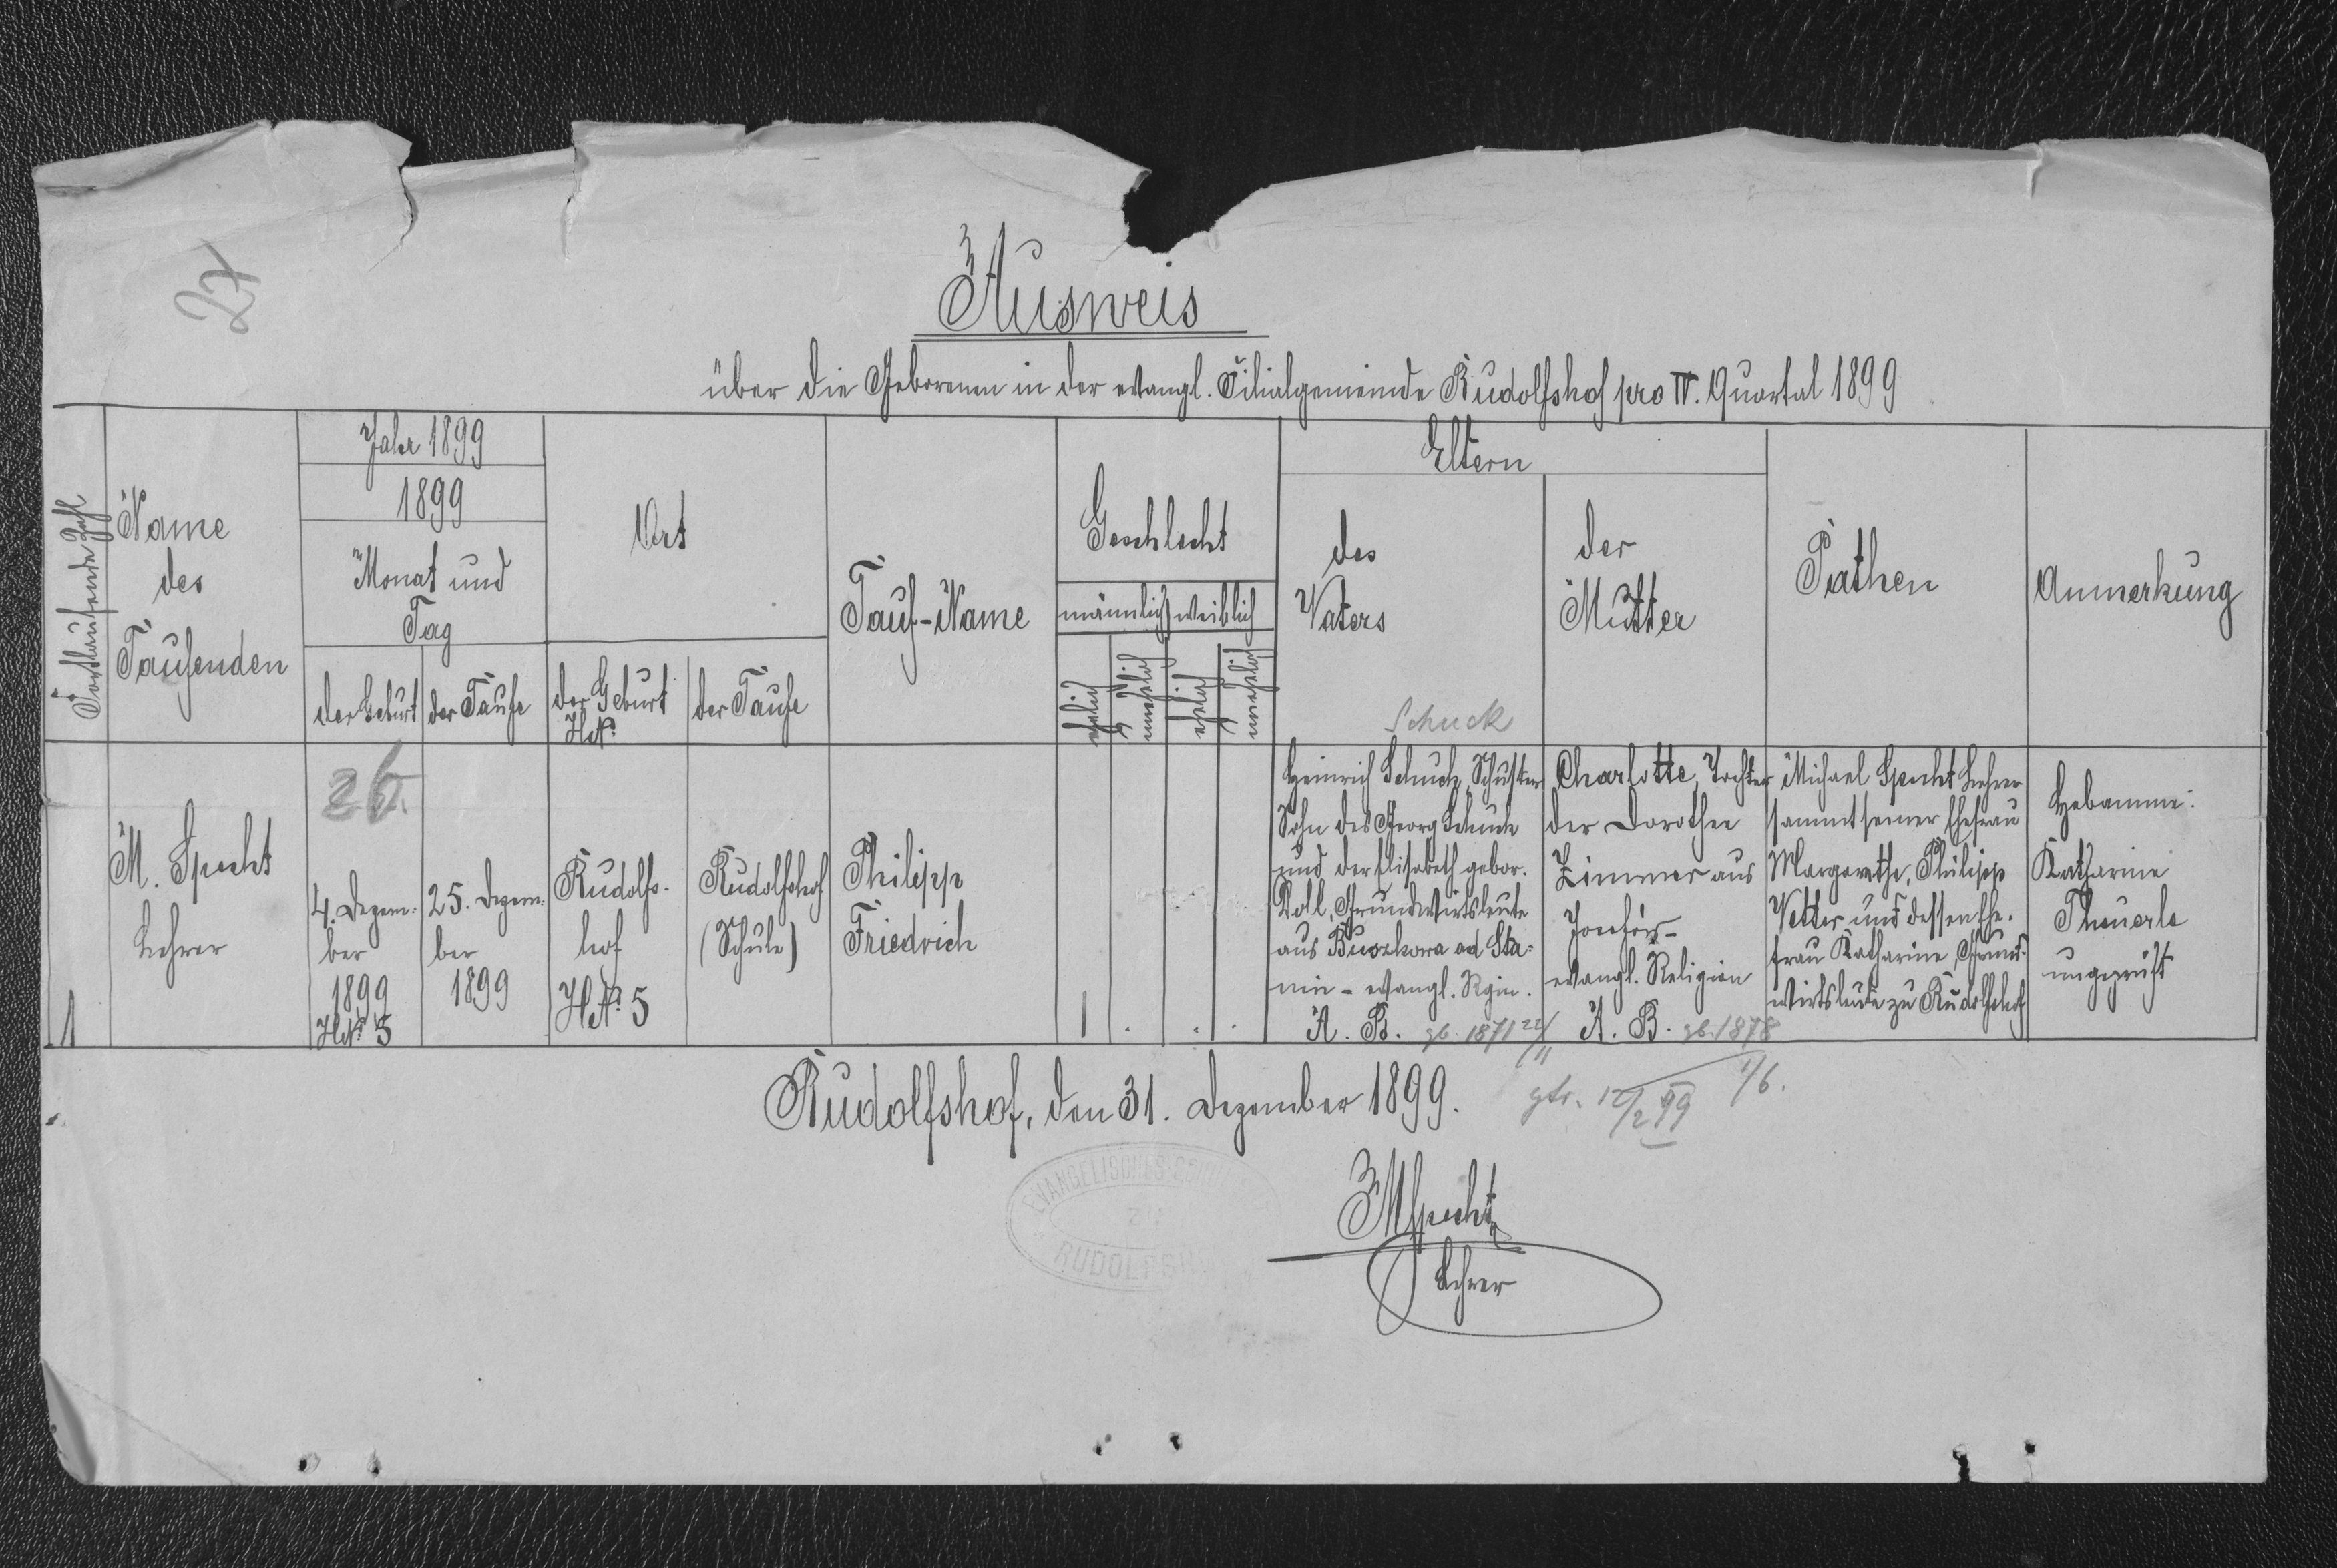 27
Ausweis
über die Geborenen in der evangl. Filialgemeinde Rudolfshof pro IV. Quartal 1899
Fortlaufende Zahl
Name
des
Taufenden
Jahr 1899
1899
Monat und
Tag
der Geburt
der Taufe
Ort
der Geburt
HN°
der Taufe
Tauf-Name
Geschlecht
männlich
weiblich
ehelich
unehelich
ehelich
unehelich
Eltern
des
Vaters
der
Mutter
Pathen
Anmerkung
Schuck
1
M. Specht
Lehrer
26.
4. Dezem-
ber
1899
HN° 5
25. Dezem-
ber
1899
Rudolfs-
hof
HN° 5
Rudolfshof
(Schule)
Philipp
Friedrich
1
Heinrich Schuck, Schuster
Sohn des Georg Schuck
und der Elisabeth gebor.
Koll, Grundwirtsleute
aus Buszkowa ad Sta-
nin - evangl. Rgin.
A. B. gb. 1871 22/11
Charlotte, Tochter
der Dorothee
Zimmer aus
evangl. Religion
A. B. gb. 1878
1/6.
Michael Specht Lehrer
sammt seiner Ehefrau
Margarethe, Philipp
Vetter und dessen Ehe-
frau Katharine, Grund-
wirtsleute zu Rudolfshof
Hebamme:
Katharine
Theuerle
ungeprüft
gtr. 12/2 99
Rudolfshof, den 31. Dezember 1899.
EVANGELISCHES
RUDOLFSH
MSpecht
Lehrer